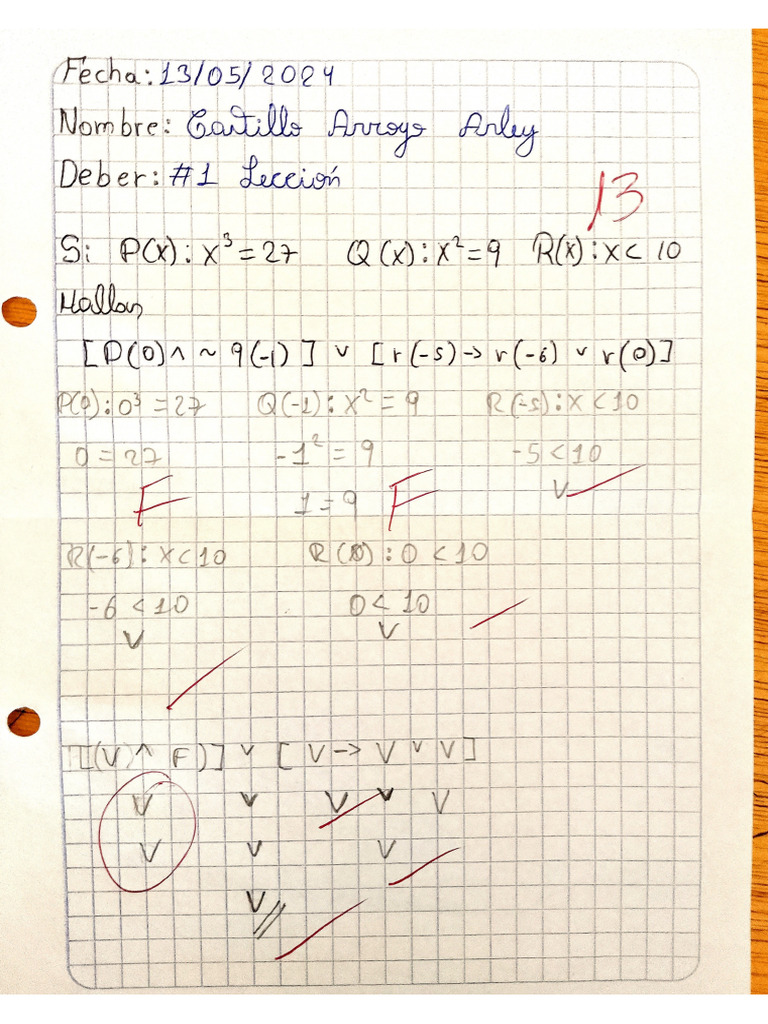 Fecha: 13/05/2024
Nombre: Castillo Arroyo Arley
Deber: #1 Lección
13
Si: P(x): x³ = 27 Q(x): x² = 9 R(x): x < 10
Hallar,
[P(0) ∧ ~ q(-1)] ∨ [r(-5) -> r(-6) ∨ r(0)]
P(0): 0³ = 27 Q(-1): x² = 9 R(-5): x < 10
0 = 27 -1² = 9 -5 < 10
F 1 = 9 F V
R(-6): x < 10 R(0): 0 < 10
-6 < 10 0 < 10
V V
[(V) ∧ F)] ∨ [ V -> V ∨ V]
V ∨ V ∨ V
V ∨ V
V//